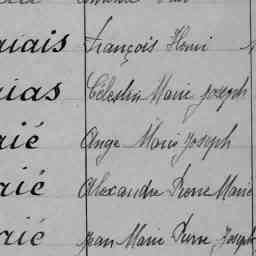 aiais François Henri
aias Célestin Marie Joseph
aié Ange Marie Joseph
aié Alexandre Pierre Marie
aié Jean Marie Pierre Joseph